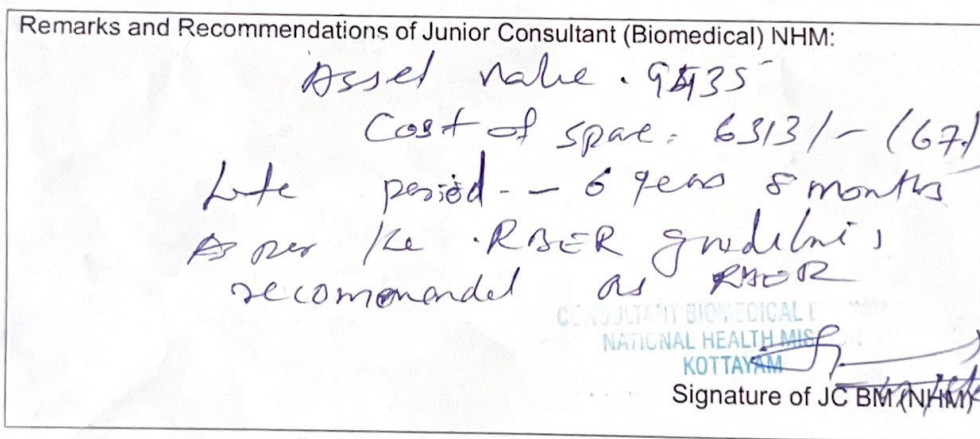 Remarks and Recommendations of Junior Consultant (Biomedical) NHM:
Asset value . 9435
Cost of spare : 6313/- (67)
Life period - - 6 years 8 months
As per the . RBER guideline,
recommended as RBER
CONSULTANT BIOMEDICAL E
NATIONAL HEALTH MISS
KOTTAYAM
Signature of JC BM (NHM)